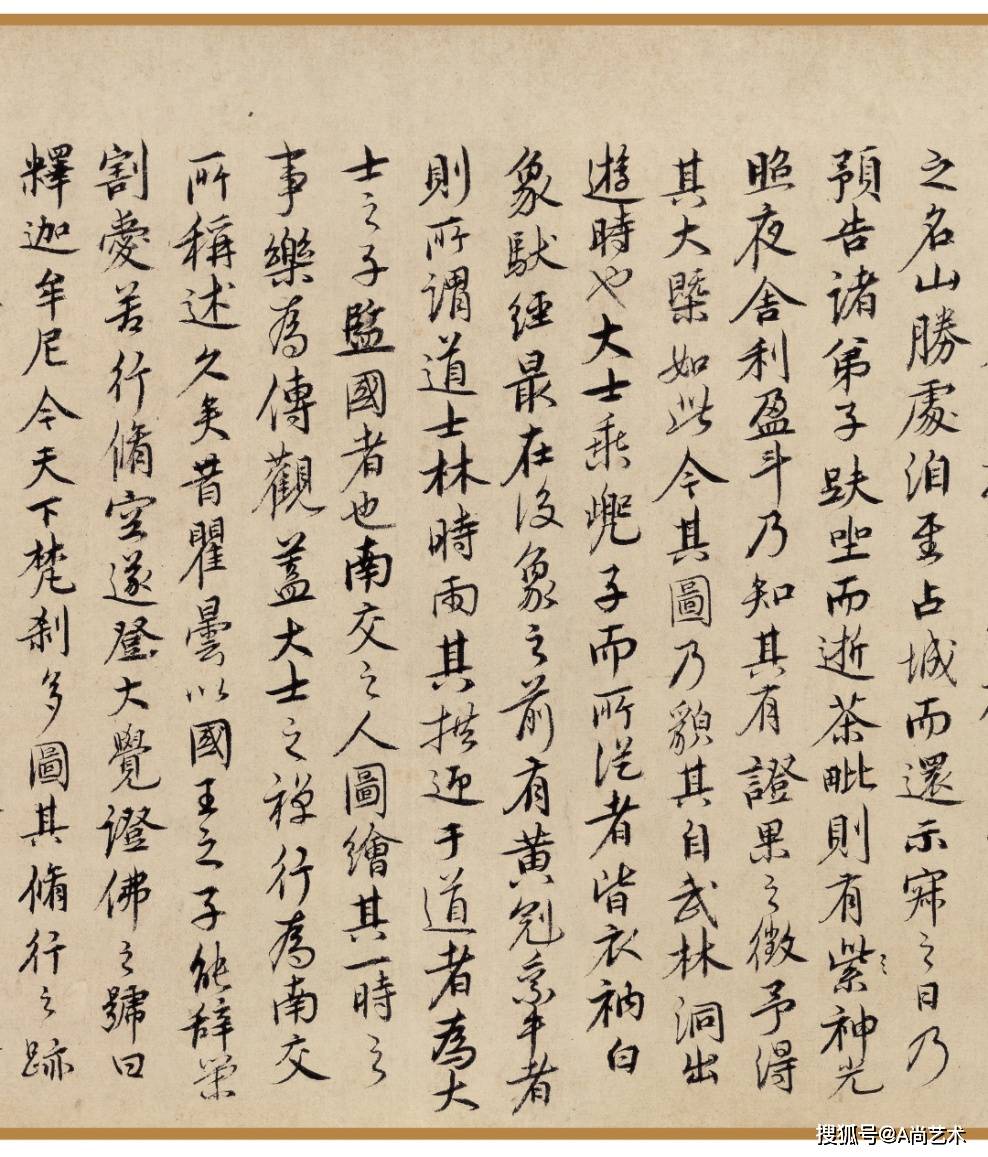 之名山勝處洎至占城而還示寂之日乃
預告諸弟子趺坐而逝茶毗則有紫神光
照夜舍利盈斗乃知其有證果之徵予得
其大槩如此今其圖乃貌其自武林洞出
遊時也大士乘兜子而所從者皆衣衲白
象馱經最在後象之前有黃冠牽牛者
則所謂道士林時雨其拱迎于道者為大
士之子監國者也南交之人圖繪其一時之
事樂為傳觀蓋大士之禪行為南交
所稱述久矣昔瞿曇以國王之子能辭榮
割愛苦行脩空遂登大覺證佛之號曰
釋迦牟尼今天下梵剎多圖其脩行之跡
搜狐号@A尚艺术